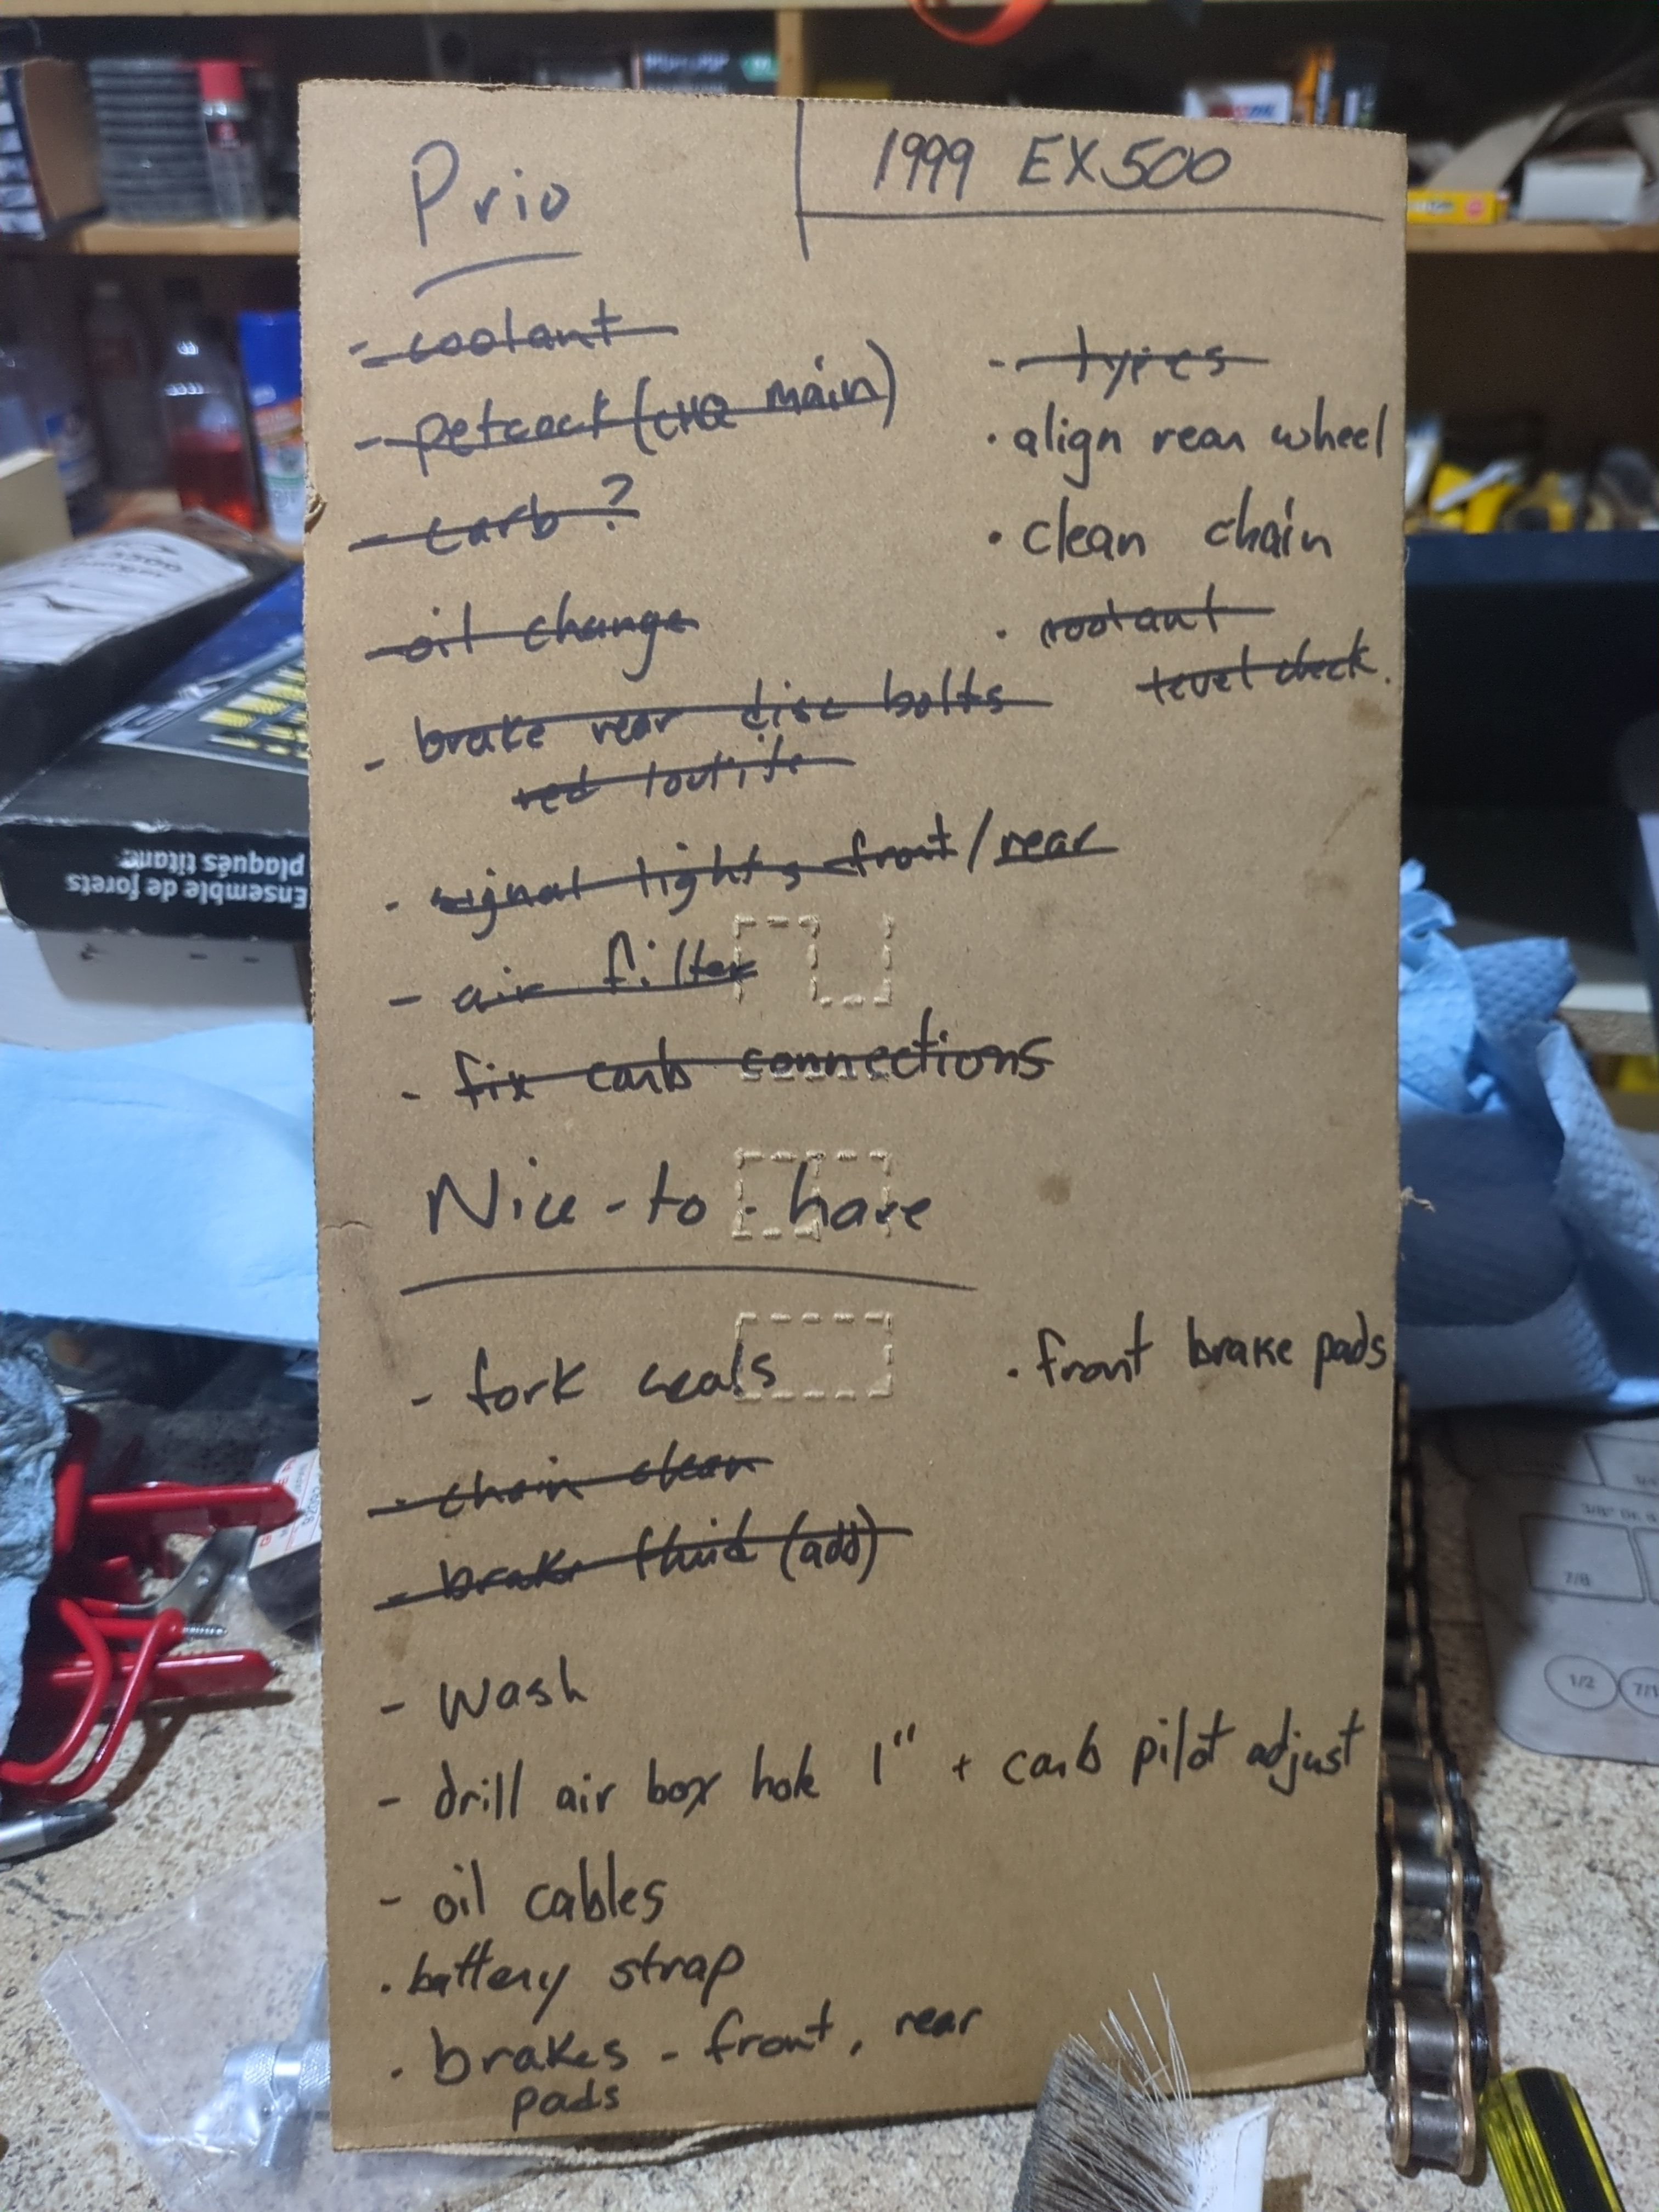 Prio
1999 EX500
- coolant
- petcock (CHQ main)
- carb?
- oil change
- brake rear disc bolts
red loctite
- signal lights front/rear
- air filter
- fix carb connections
- types
· align rear wheel
· clean chain
· coolant
level check.
Nice-to-have
- fork seals
- chain clean
- brake fluid (add)
- wash
- drill air box hole 1" + carb pilot adjust
- oil cables
· battery strap
· brakes - front, rear
pads
· front brake pads
Ensemble de forets
plaqués titane
7/8
1/2